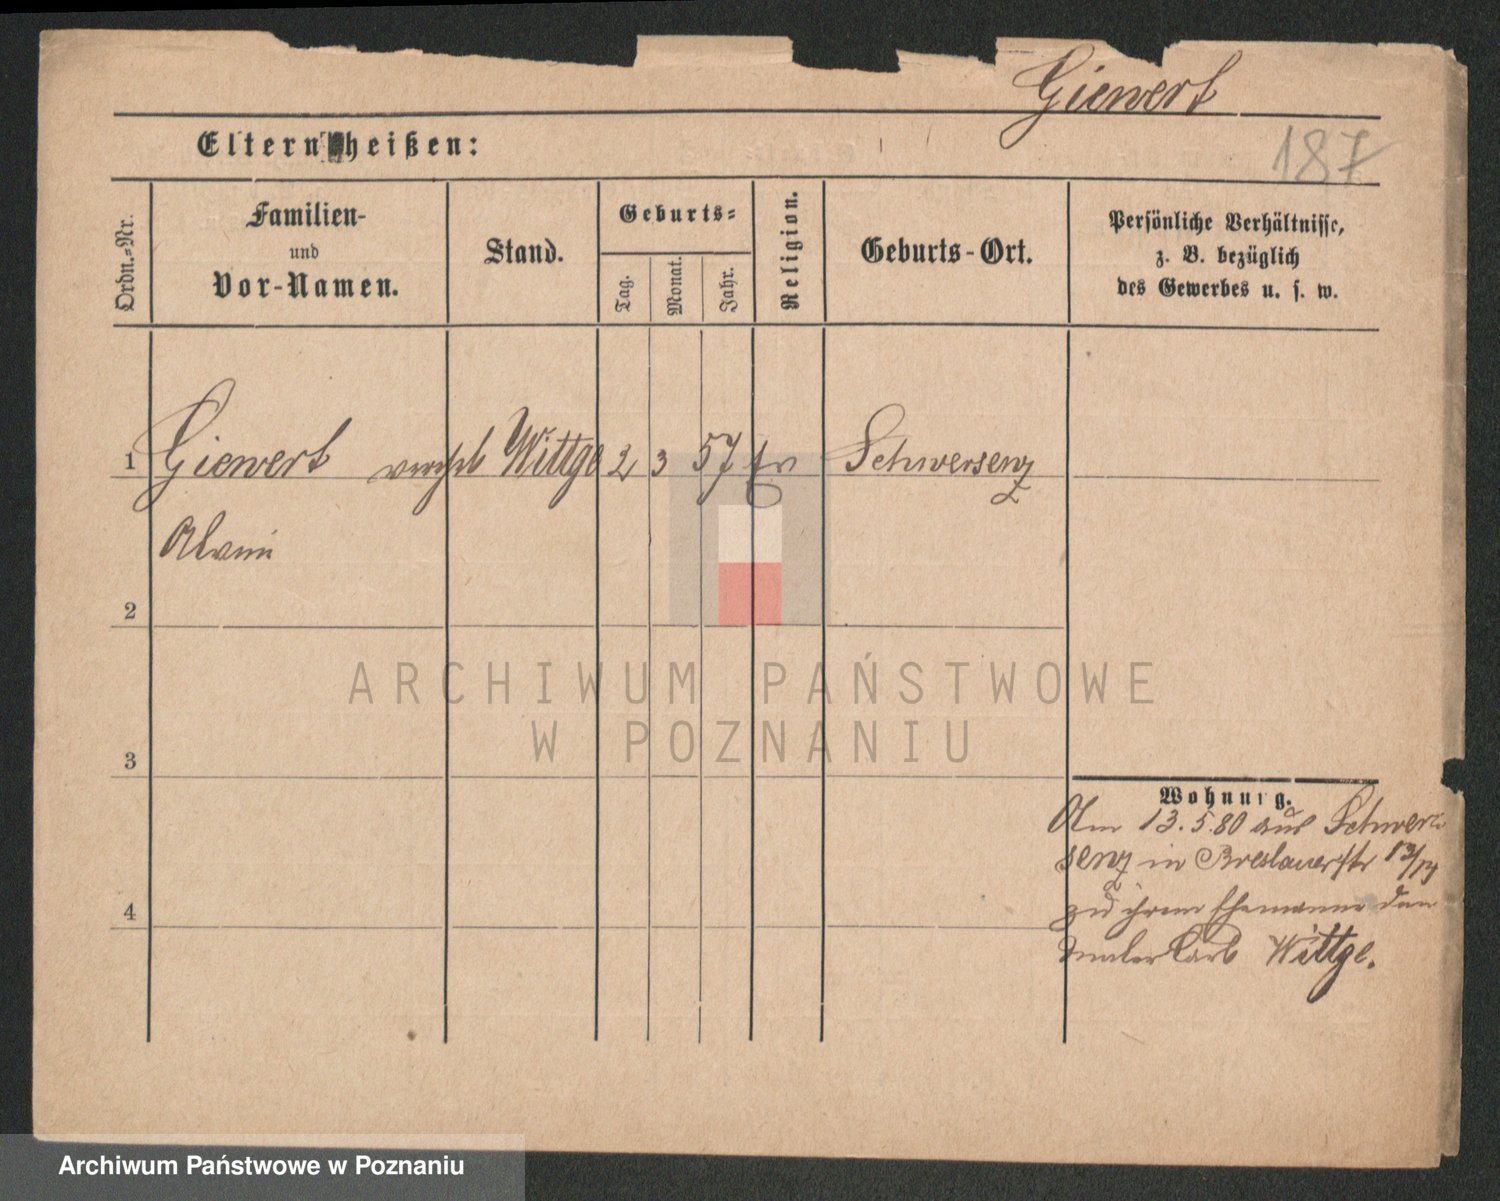 Giewert
187
Eltern heißen:
Ordn.-Nr.
Familien-
und
Vor-Namen.
Stand.
Geburts-
Tag.
Monat.
Jahr.
Religion.
Geburts-Ort.
Persönliche Verhältnisse,
z. B. bezüglich
des Gewerbes u. s. w.
1 Giewert verehl Wittge 2 3 57 Schwersenz
2
3
4
Wohnung.
Am 13.5.80 aus Schwer-
senz in Breslauerstr
zu ihrem Ehemanne den
Maler Carl Wittge.
ARCHIWUM PAŃSTWOWE
W POZNANIU
Archiwum Państwowe w Poznaniu